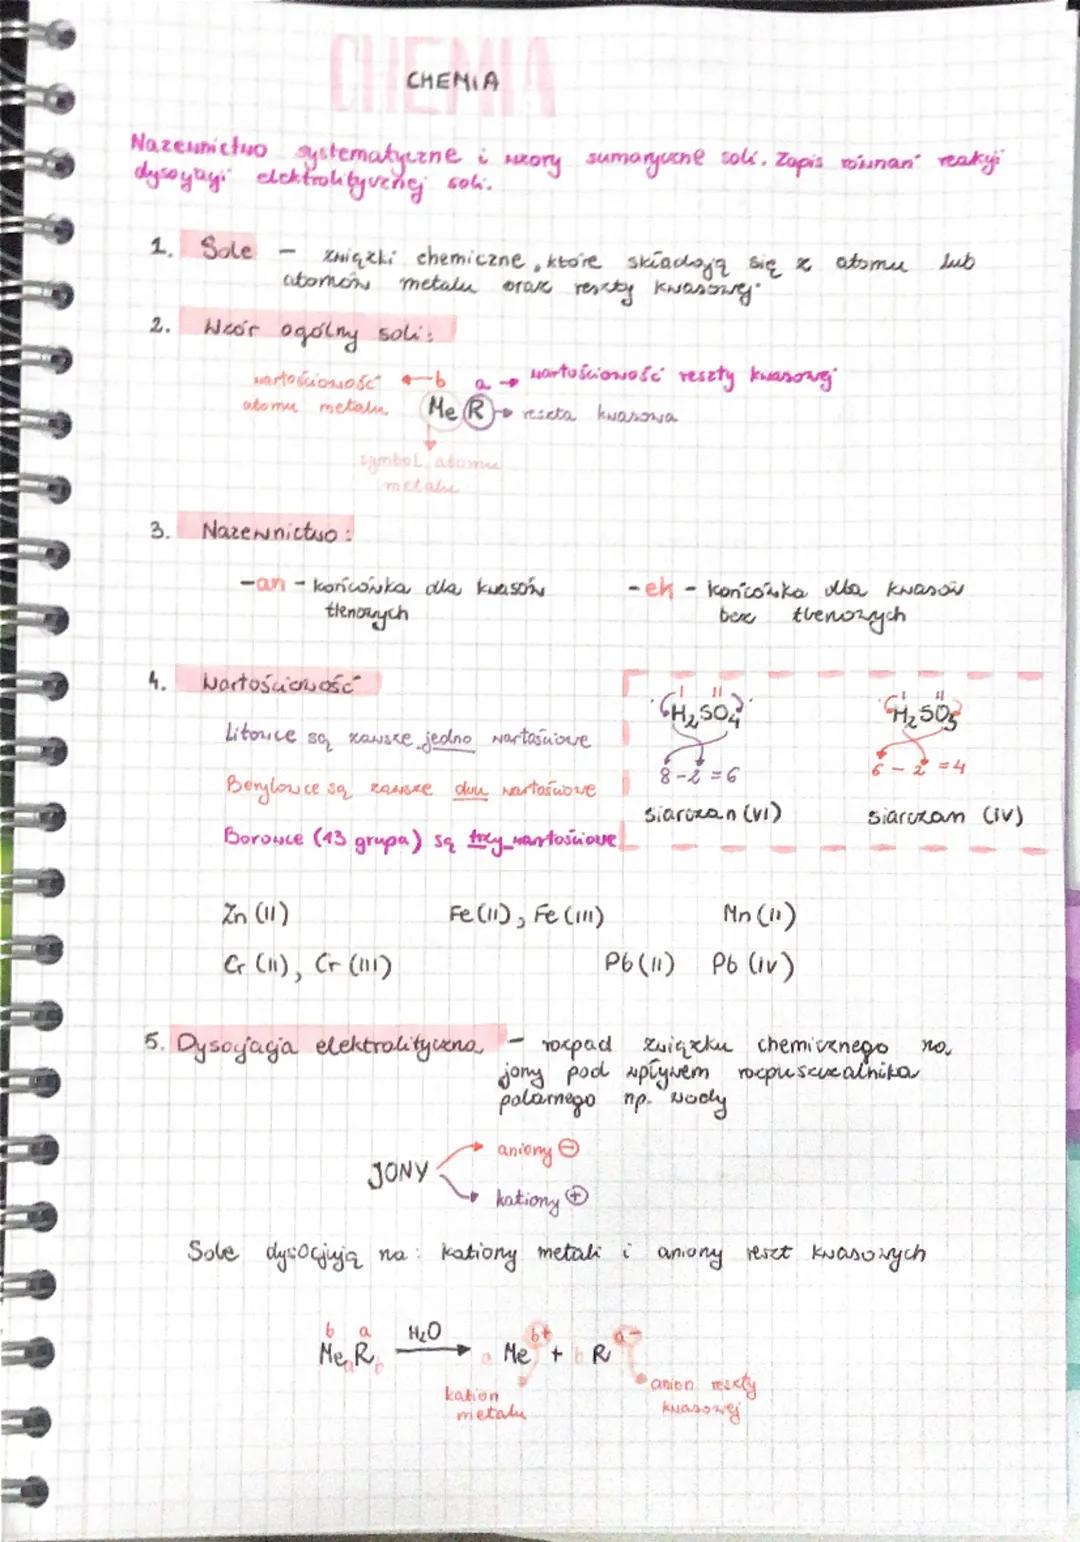 CHEMIA
CHEMIA
Nazewnictwo systematyczne i wzory sumaryczne soli. Zapis równań reakcji
dysocjacji elektrolitycznej soli.
1. Sole - związki chemiczne, które składają się z atomu lub
atomów metalu oraz reszty kwasowej
2. Wzór ogólny soli:
wartościowość ← b a → wartościowość reszty kwasowej
atomu metalu Me R → reszta kwasowa
symbol atomu
metalu
3. Nazewnictwo:
-an - końcówka dla kwasów -ek - końcówka dla kwasów
tlenowych bez tlenowych
4. Wartościowość
I II I II
H₂SO₄ H₂SO₃
Litowce są zawsze jedno wartościowe
8-2=6 6-2=4
Berylowce są zawsze dwu wartościowe
siarczan (VI) siarczan (IV)
Borowce (13 grupa) są trzy wartościowe
Zn (II) Fe (II), Fe (III) Mn (II)
Cr (II), Cr (III) Pb (II) Pb (IV)
5. Dysocjacja elektrolityczna - rozpad związku chemicznego na
jony pod wpływem rozpuszczalnika
polarnego np. wody
aniony ⊖
JONY
kationy ⊕
Sole dysocjują na: kationy metali i aniony reszt kwasowych
b a H₂O b+ a-
MeₐR_b → a Me + b R
kation anion reszty
metalu kwasowej